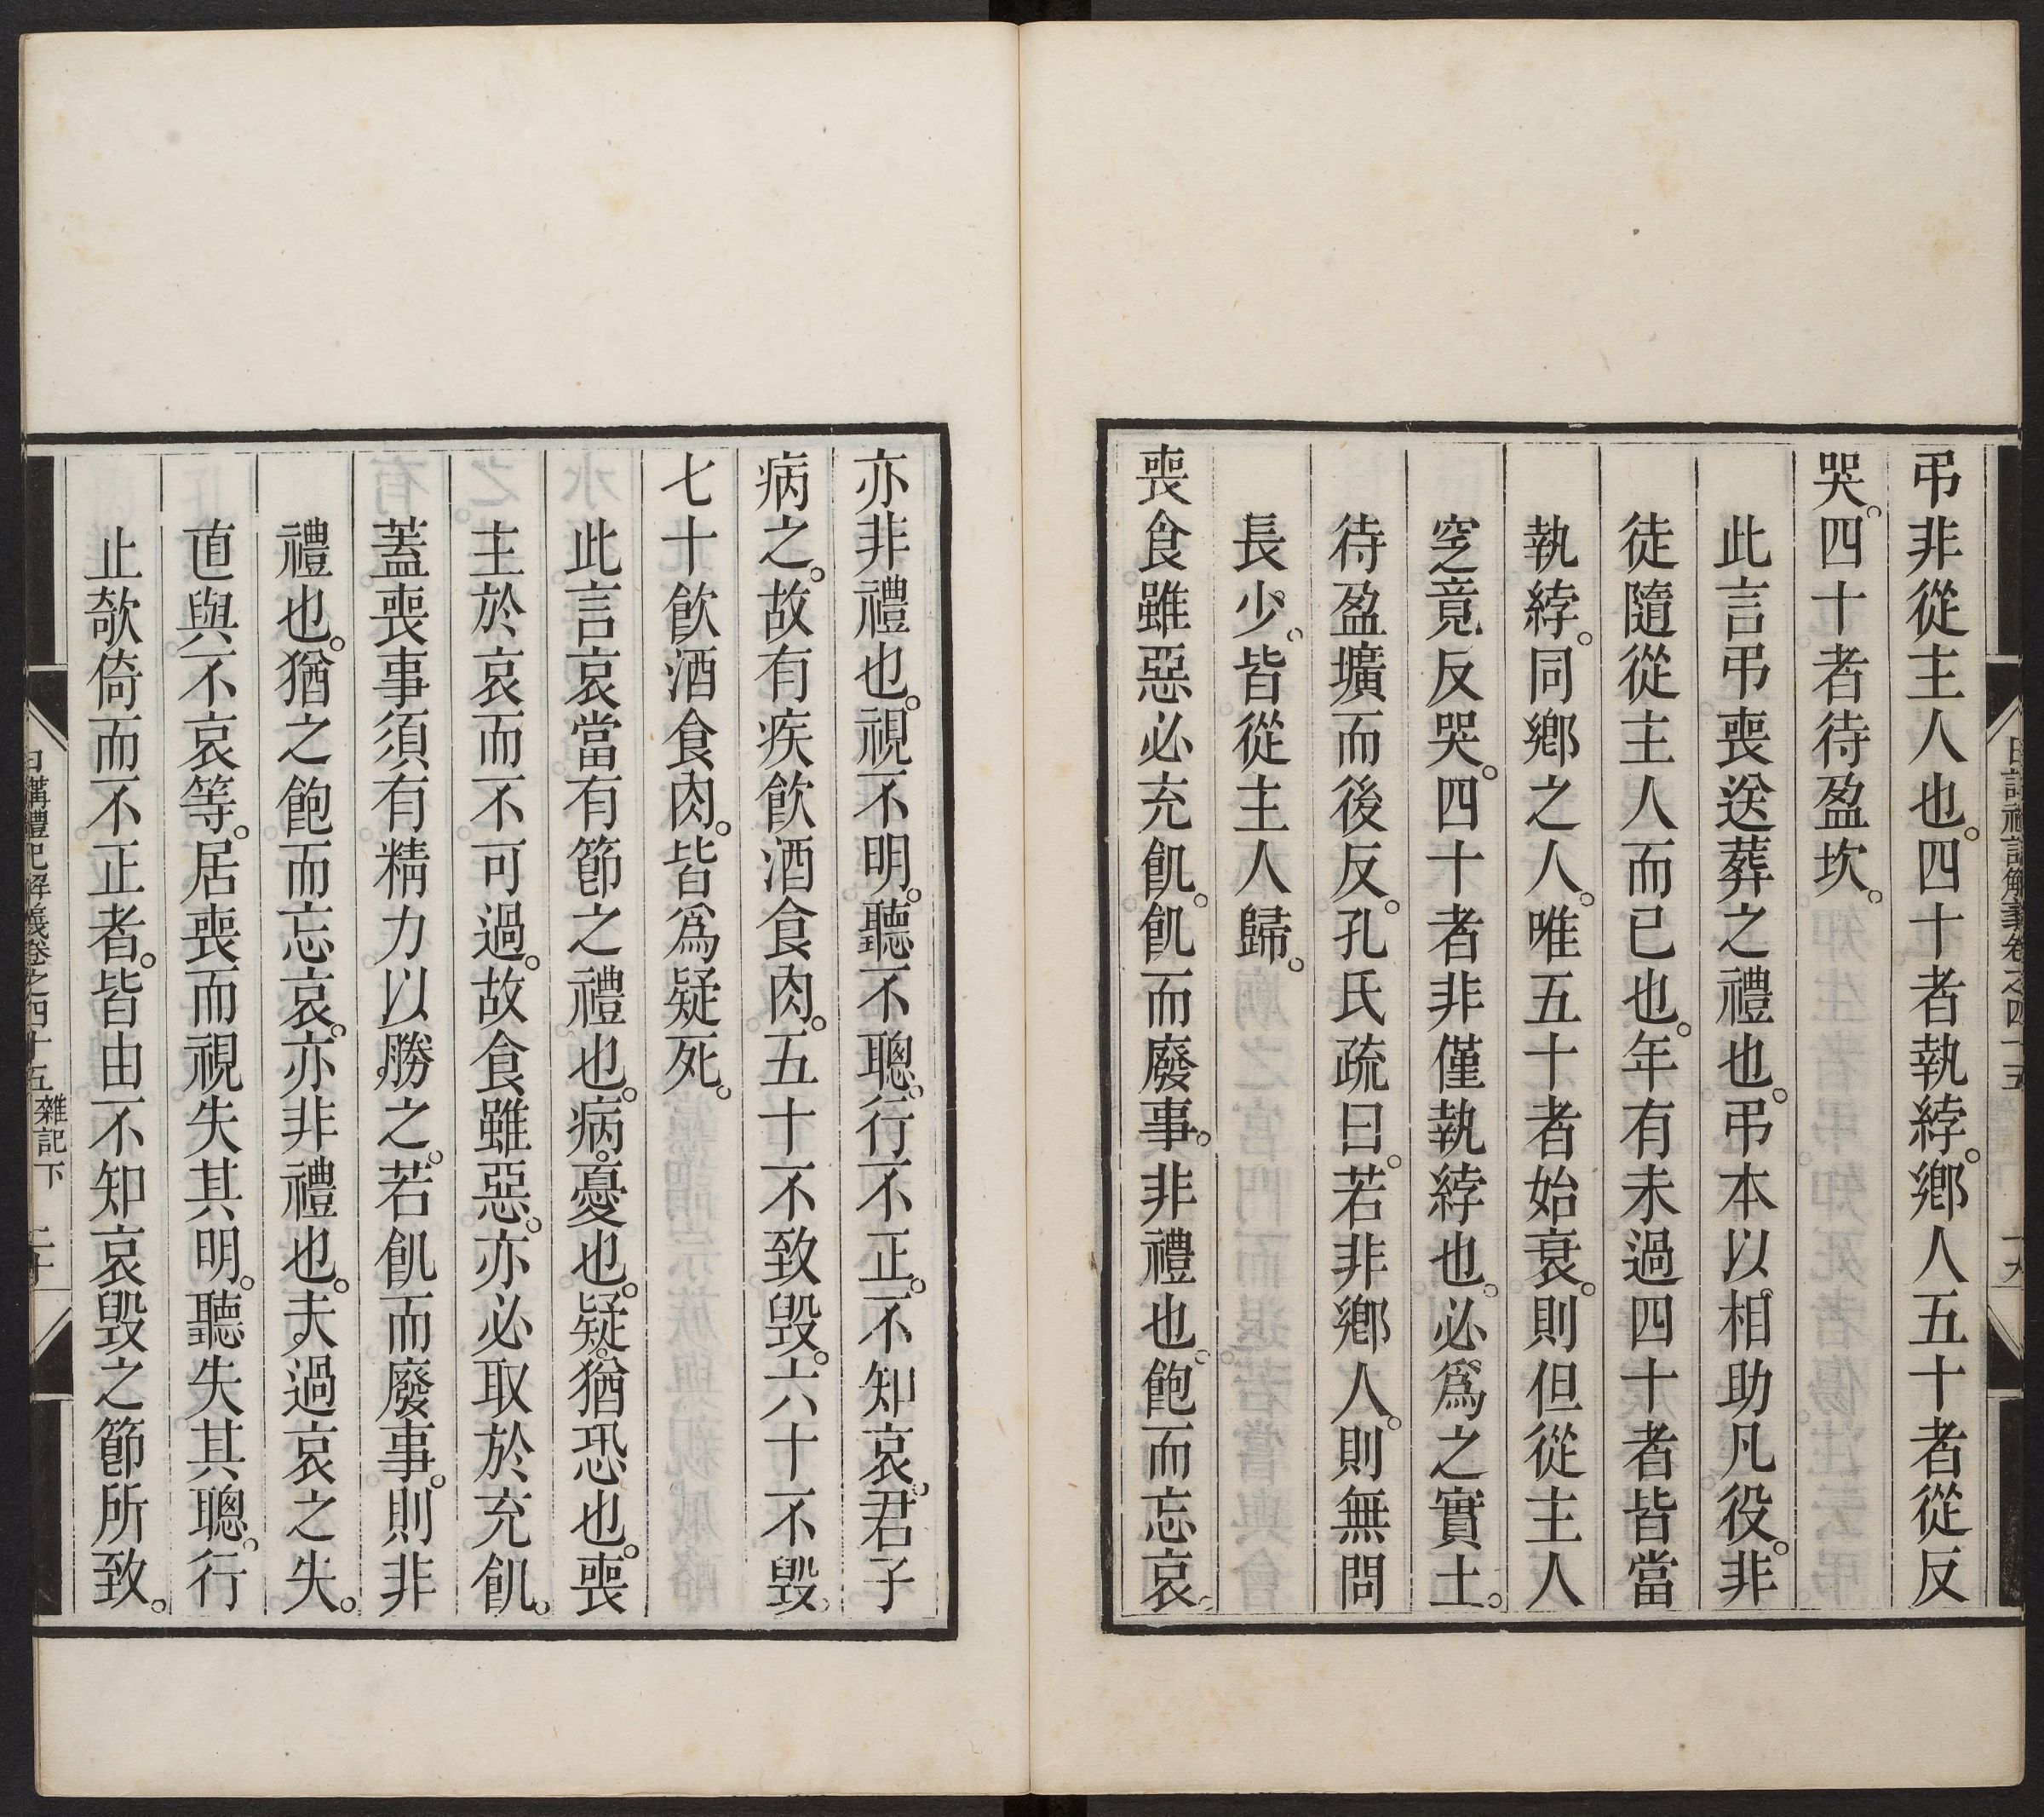 弔非從主人也。四十者執綍。鄉人五十者從反
哭。四十者待盈坎。
此言弔喪送葬之禮也。弔本以相助凡役。非
徒隨從主人而已也。年有未過四十者皆當
執綍。同鄉之人。唯五十者始衰。則但從主人
窆竟反哭。四十者非僅執綍也。必爲之實土。
待盈壙而後反。孔氏疏曰。若非鄉人。則無問
長少。皆從主人歸。
喪食雖惡必充飢。飢而廢事。非禮也。飽而忘哀。
日講禮記解義卷之四十五
十九
亦非禮也。視不明。聽不聰。行不正。不知哀。君子
病之。故有疾飲酒食肉。五十不致毀。六十不毀。
七十飲酒食肉。皆爲疑死。
此言哀當有節之禮也。病。憂也。疑。猶恐也。喪
主於哀而不可過。故食雖惡。亦必取於充飢。
蓋喪事須有精力以勝之。若飢而廢事。則非
禮也。猶之飽而忘哀。亦非禮也。夫過哀之失。
直與不哀等。居喪而視失其明。聽失其聰。行
止欹倚而不正者。皆由不知哀毀之節所致。
日講禮記解義卷之四十五 雜記下 二十